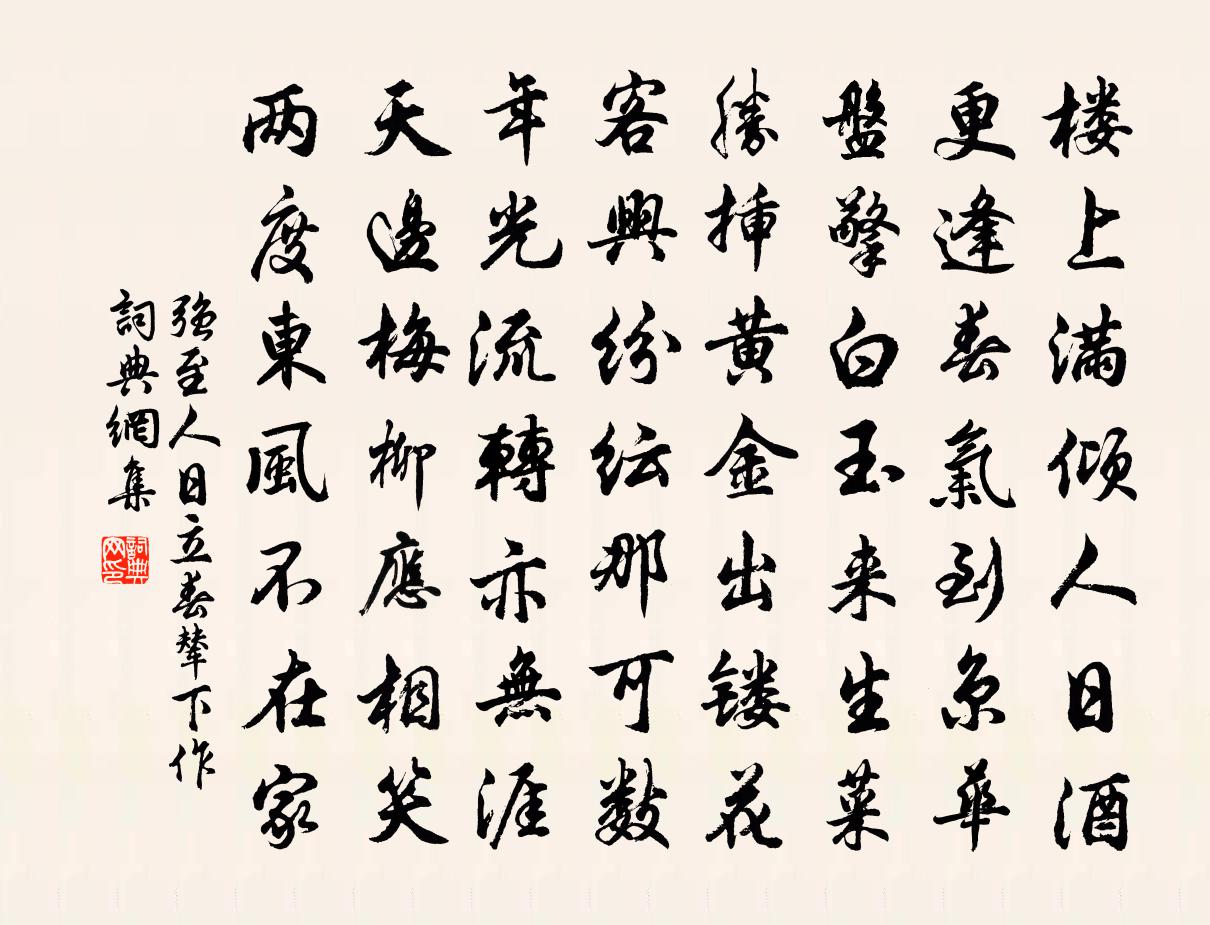 楼上满倾人日酒
更逢春氣到京華
盤擎白玉来生菜
勝插黄金出镂花
客興纷纭那可数
年光流轉亦無涯
天邊梅柳應相笑
两度東風不在家
强至人日立春輦下作
詞典網集
詞典网印